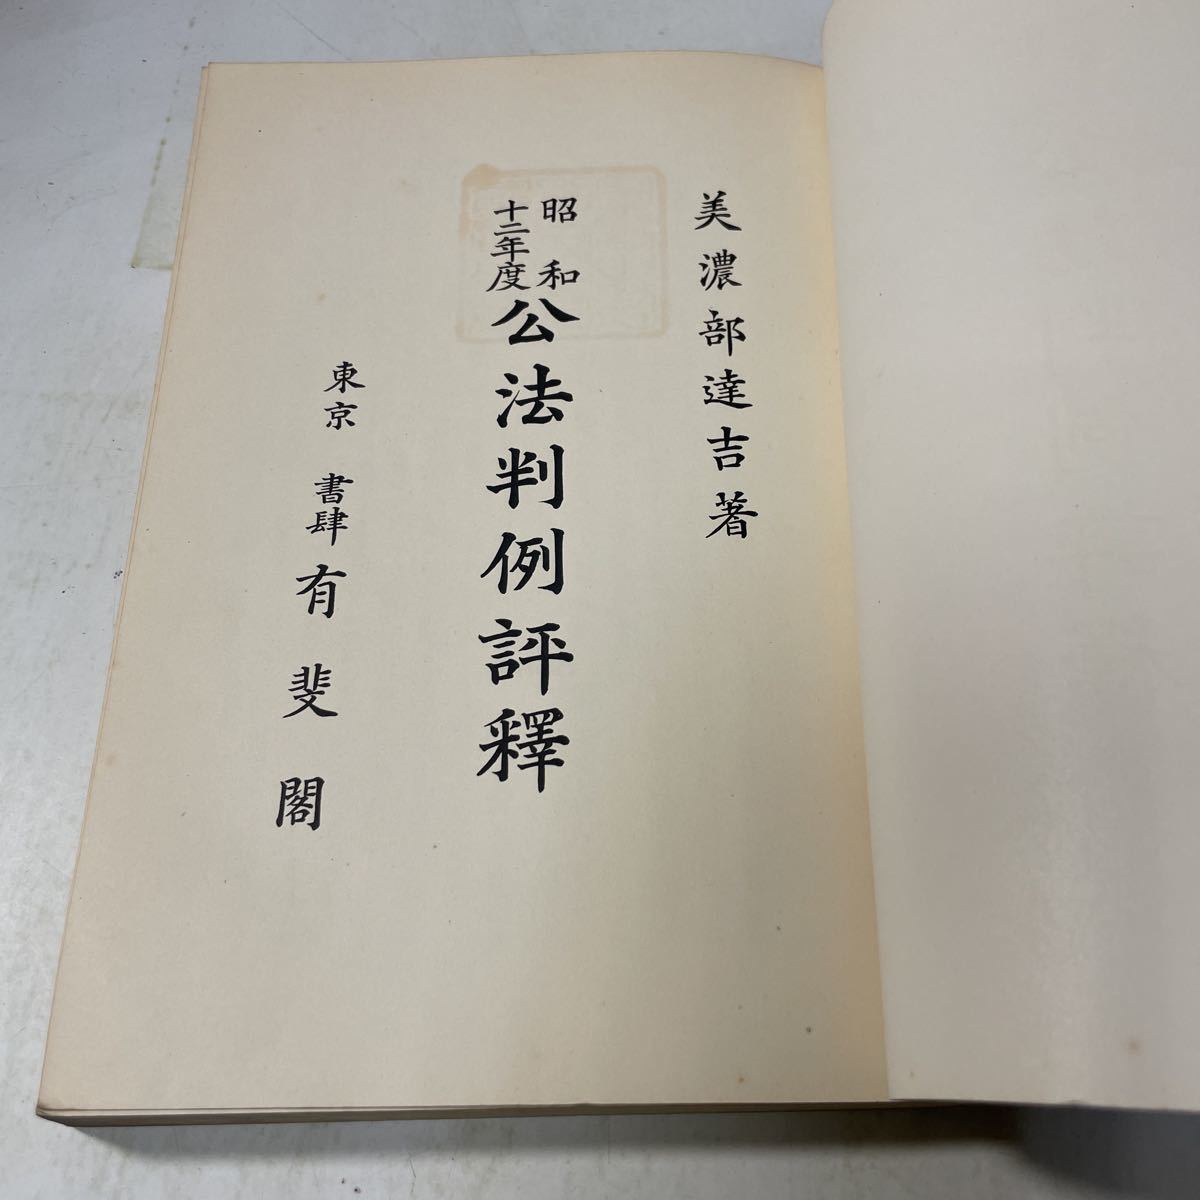 美濃部達吉著
昭和
十二年度
公法判例評釋
東京 書肆 有斐閣